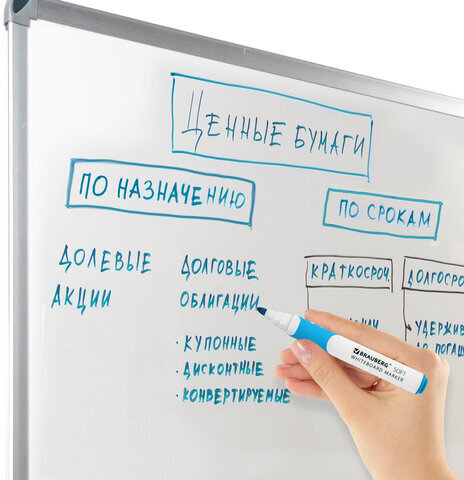 Ценные бумаги
По назначению
По срокам
Долевые
акции
Долговые
облигации
· купонные
· дисконтные
· конвертируемые
Краткосроч.
Долгосро
удержив
до погаш
BRAUBERG SOFT
WHITEBOARD MARKER